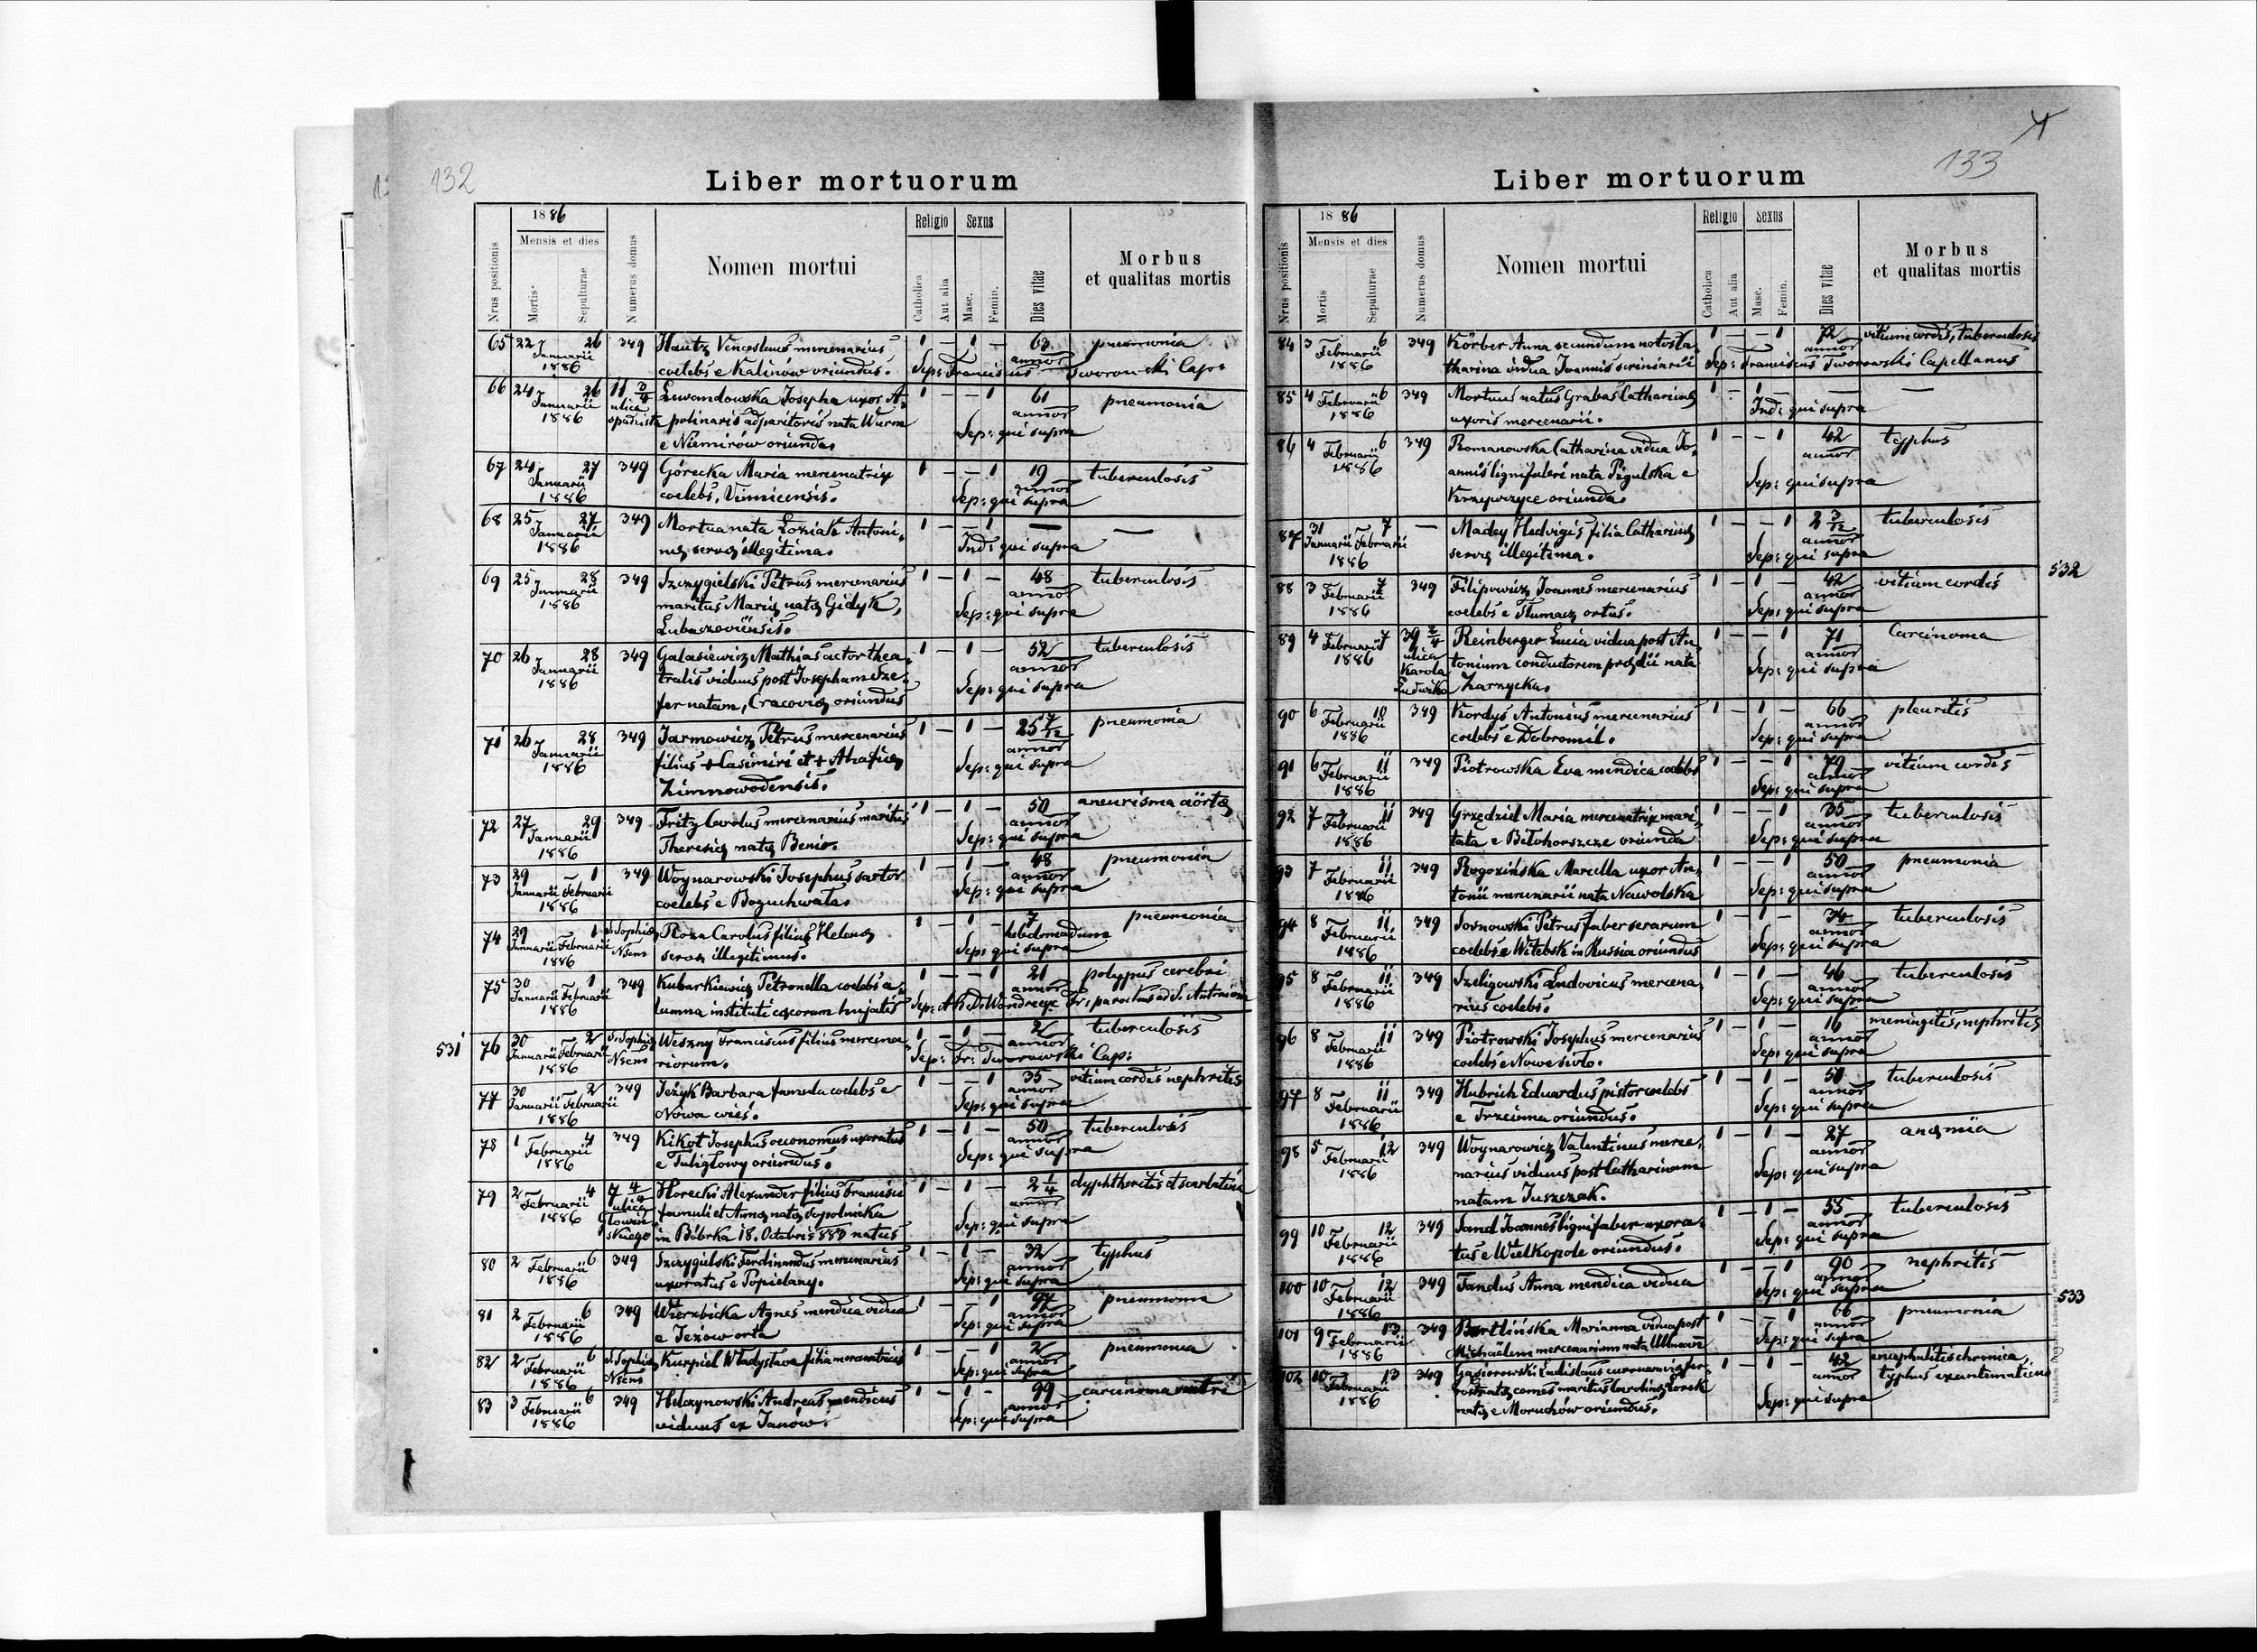 132
Liber mortuorum
1886
Mensis et dies
Nrus positionis
Mortis
Sepulturae
Numerus domus
Nomen mortui
Religio
Catholica
Aut alia
Sexus
Masc.
Femin.
Dies vitae
Morbus
et qualitas mortis
65 22 26 349 Hautz Venceslaus mercenarius 1 – 1 – 63 pneumonia
Januarii coelebs e Kalinów oriundus. annor
1886 Sep: Franciscus Tworowski Cap:
66 24 26 11 3/4 Lewandowska Josepha uxor A- 1 – – 1 61 pneumonia
Januarii ulica polinaris adparitoris nata Wurm annor
1886 e Niemirów oriunda. Sep: qui supra
67 24 27 349 Górecka Maria mercenatrix 1 – – 1 19 tuberculosis
Januarii coelebs, Vinnicensis. annor
1886 Sep: qui supra
68 25 27 349 Mortua nata Łoziak Antoni- 1 – – 1 — —
Januarii næ servæ illegitima. Ind: qui supra
1886
69 25 28 349 Szczygielski Petrus mercenarius 1 – 1 – 48 tuberculosis
Januarii maritus Mariæ natæ Gidyk, annor
1886 Lubaczoviensis. Sep: qui supra
70 26 28 349 Galasiewicz Mathias actor thea- 1 – 1 – 52 tuberculosis
Januarii tralis viduus post Josepham Sze- annor
1886 fer natam, Cracoviæ oriundus Sep: qui supra
71 26 28 349 Jarmowicz Petrus mercenarius 1 – 1 – 25 7/12 pneumonia
Januarii filius + Casimiri et + Ahafiæ annor
1886 Zimnowodensis. Sep: qui supra
72 27 29 349 Fritz Carolus mercenarius maritus 1 – 1 – 50 aneurisma aörtæ
Januarii Theresiæ natæ Benio. annor
1886 Sep: qui supra
73 29 – 1 349 Woynarowski Josephus sartor 1 – 1 – 48 pneumonia
Januarii Februarii coelebs e Boguchwała. annor
1886 Sep: qui supra
74 29 1 S. Sophiæ Roza Carolus filius Helenæ 1 – 1 – 7 pneumonia
Januarii Februarii Nsens servæ illegitimus. hebdomadum
1886 Sep: qui supra
75 30 1 349 Kubarkiewicz Petronella coelebs a- 1 – – 1 21 polypus cerebri
Januarii Februarii lumna instituti cæcorum hujatis annor
1886 Fr: parochus ad S. Antonium
531 76 30 2 S. Sophiæ Weszny Franciscus filius mercena- 1 – 1 – 2 tuberculosis
Januarii Februarii Nsens riorum. annor
1886 Sep: Fr: Tworowski Cap:
77 30 2 349 Jeżyk Barbara famula coelebs e 1 – – 1 35 vitium cordis nephritis
Januarii Februarii Nowa wieś. annor
1886 Sep: qui supra
78 1 4 349 Kikot Josephus oeconomus uxoratus 1 – 1 – 50 tuberculosis
Februarii e Tuligłowy oriundus. annor
1886 Sep: qui supra
79 2 4 7 4/4 Horecki Alexander filius Francisci 1 – 1 – 2 1/4 dyphtheritis et scarlatina
Februarii ulica famuli et Annæ natæ Sopolnicka annor
1886 Głowiń- skiego in Bóbrka 18. Octobris 883 natus Sep: qui supra
80 2 6 349 Szczygielski Ferdinandus mercenarius 1 – 1 – 32 typhus
Februarii uxoratus e Popielany. annor
1886 Sep: qui supra
81 2 6 349 Wierzbicka Agnes mendica vidua 1 – – 1 97 pneumonia
Februarii e Jezow orta annor
1886 Sep: qui supra
82 2 6 S. Sophiæ Kurpiel Władysława filia mercenatricis 1 – – 1 2 pneumonia
Februarii Nsens annor
1886 Sep: qui supra
83 3 6 349 Andreas mendicus 1 – 1 – 99 carcinoma
Februarii viduus ex Janów. annor
1886 Sep: qui supra
133
Liber mortuorum
1886
Mensis et dies
Nrus positionis
Mortis
Sepulturae
Numerus domus
Nomen mortui
Religio
Catholica
Aut alia
Sexus
Masc.
Femin.
Dies vitae
Morbus
et qualitas mortis
84 3 6 349 Körber Anna secundum notos Ca- 1 – – 1 72 vitium cordis, tuberculosis
Februarii tharina vidua Joannis scriniarii annor
1886 Sep: Franciscus Tworowski Capellanus
85 4 6 349 Mortuus natus Grabas Catharinæ 1 – 1 — —
Februarii uxoris mercenarii. Ind: qui supra
1886
86 4 6 349 Romanowska Catharina vidua Jo- 1 – – 1 42 typhus
Februarii annis lignifabri nata Pigulska e annor
1886 Krzywczyce oriunda. Sep: qui supra
87 31 7 — Madey Hedvigis filia Catharinæ 1 – – 1 2 3/12 tuberculosis
Januarii Februarii servæ illegitima. annor
1886 Sep: qui supra
88 3 7 349 Filipowicz Joannes mercenarius 1 – 1 – 42 vitium cordis 532
Februarii coelebs e Tłumacz ortus. annor
1886 Sep: qui supra
89 4 7 39 2/4 Reinberger Lucia vidua post An- 1 – – 1 71 Carcinoma
Februarii ulica tonium conductorem prædii nata annor
1886 Karola Ludwika Zarzycka. Sep: qui supra
90 6 10 349 Kordyś Antonius mercenarius 1 – 1 – 66 pleuritis
Februarii coelebs e Dobromil. annor
1886 Sep: qui supra
91 6 11 349 Piotrowska Eva mendica coelebs 1 – – 1 79 vitium cordis
Februarii annor
1886 Sep: qui supra
92 7 11 349 Grzędziel Maria mercenatrix mari- 1 – – 1 35 tuberculosis
Februarii tata e Biłohorszcze oriunda annor
1886 Sep: qui supra
93 7 11 349 Rogozińska Marcella uxor An- 1 – – 1 50 pneumonia
Februarii tonii mercenarii nata Nawolska annor
1886 Sep: qui supra
94 8 11 349 Sosnowski Petrus faber serarum 1 – 1 – 34 tuberculosis
Februarii coelebs e Witebsk in Russia oriundus annor
1886 Sep: qui supra
95 8 11 349 Szeligowski Ludovicus mercena- 1 – 1 – 46 tuberculosis
Februarii rius coelebs. annor
1886 Sep: qui supra
96 8 11 349 Piotrowski Josephus mercenarius 1 – 1 – 16 meningitis, nephritis
Februarii coelebs e Nowe sioło. annor
1886 Sep: qui supra
97 8 11 349 Hubrich Eduardus pistor coelebs 1 – 1 – 50 tuberculosis
Februarii e Trzcinna oriundus. annor
1886 Sep: qui supra
98 5 12 349 Woynarowicz Valentinus merce- 1 – 1 – 27 anæmia
Februarii narius viduus post Catharinam annor
1886 natam Juszczak. Sep: qui supra
99 10 12 349 Sand Joannes lignifaber uxora- 1 – 1 – 55 tuberculosis
Februarii tus e Wielkopole oriundus. annor
1886 Sep: qui supra
100 10 12 349 Fandus Anna mendica vidua 1 – – 1 90 nephritis
Februarii annor
1886 Sep: qui supra 533
101 9 13 349 Bartlińska Marianna vidua post 1 – – 1 66 pneumonia
Februarii Michaelem mercenarium nata Ullmann annor
1886 Sep: qui supra
102 10 13 349 Gąsiorowski Ladislaus curruum viæ fer- 1 – 1 – 42 encephalitis chronica,
Februarii comes maritus Carolinæ annor typhus exantimaticus
1886 natæ e Moruchów oriundus. Sep: qui supra